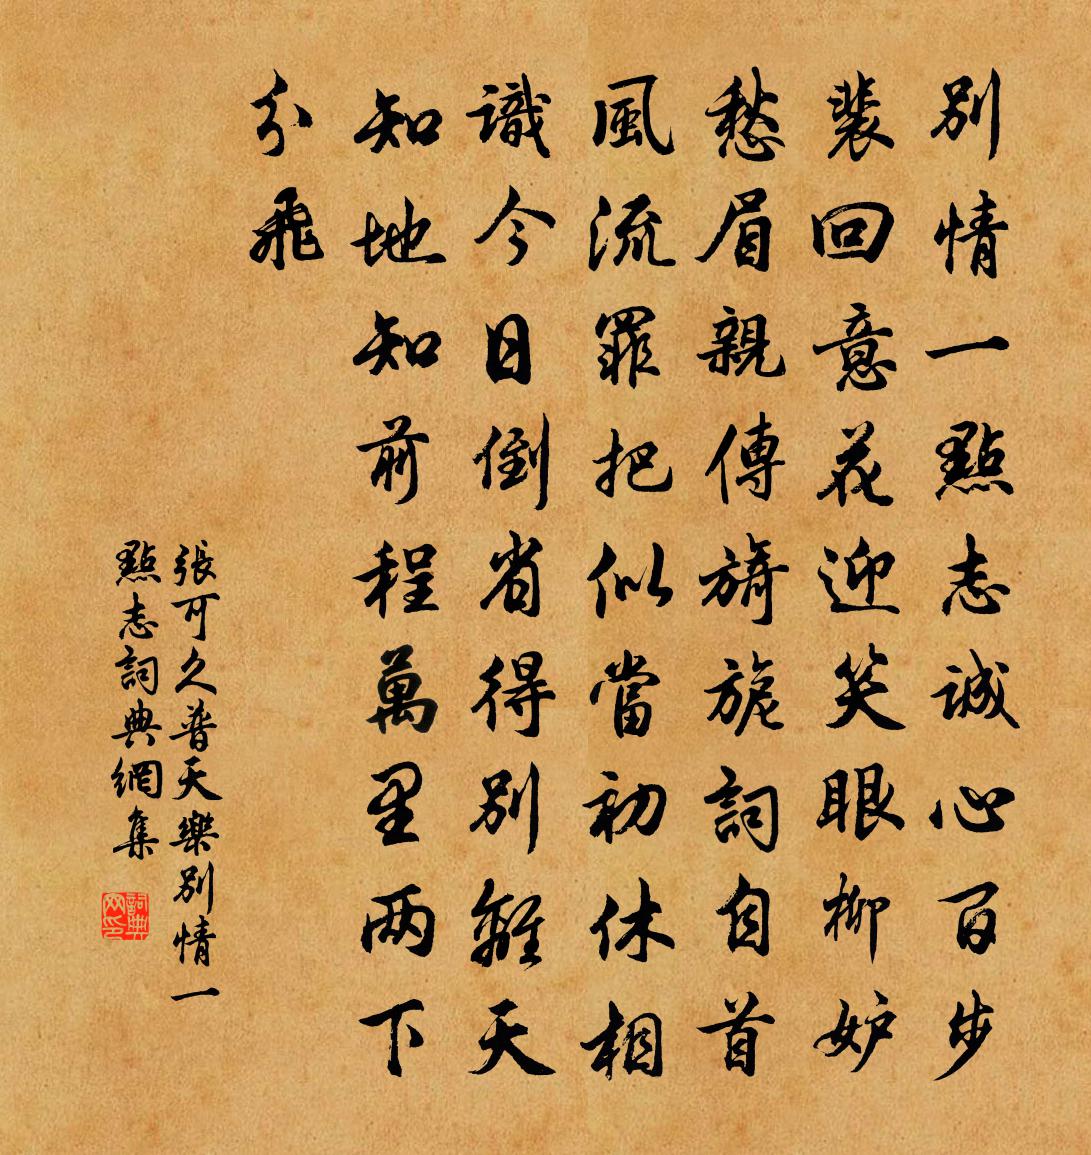 別情一點志誠心百步
裴回意花迎笑眼柳妒
愁眉親傳旖旎詞自首
風流罪把似當初休相
識今日倒省得別離天
知地知前程萬里两下
分飛
張可久普天樂別情一
點志詞典網集
詞典
网印